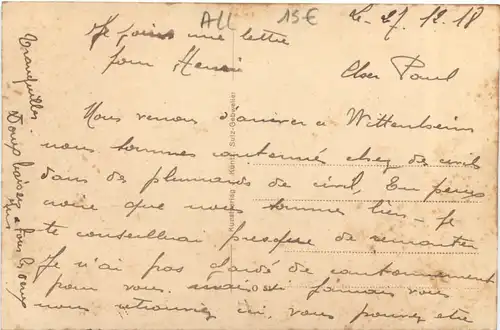 All 15€
Le 27.12.18
Je joins une lettre
pour Henri
Cher Paul
Nous venons d'arriver a Wittenheim
nous sommes cantonnés chez de civils
dans des plumards de civil, Tu peux
croire que nous sommes bien - Je
te conseillai presque de remonter
Je n'ai pas gardé de cantonnement
pour vous. mais si jamais vous
nous retrouviez ici, vous pouvez être
tranquilles.
Doux baisers a tous les deux
Kunstverlag Sulz-Gebweiler